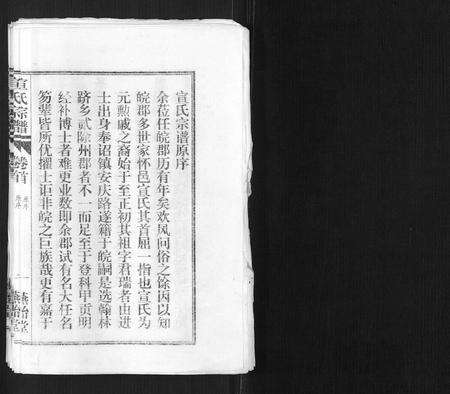 宣氏宗譜原序
余莅任皖郡历有年矣欢风问俗之馀因以知
皖郡多世家怀邑宣氏其首屈一指也宣氏为
元勋戚之裔始于至正初其祖字君瑞者由进
士出身奉诏镇安庆路遂籍于皖嗣是选翰林
跻多贰除州郡者不一而足至于登科甲贡明
经补博士者难更业数即余郡试有名大任名
笏辈皆所优擢士讵非皖之巨族哉更有嘉于
宣氏宗譜
卷首
原序
一
燕怡堂